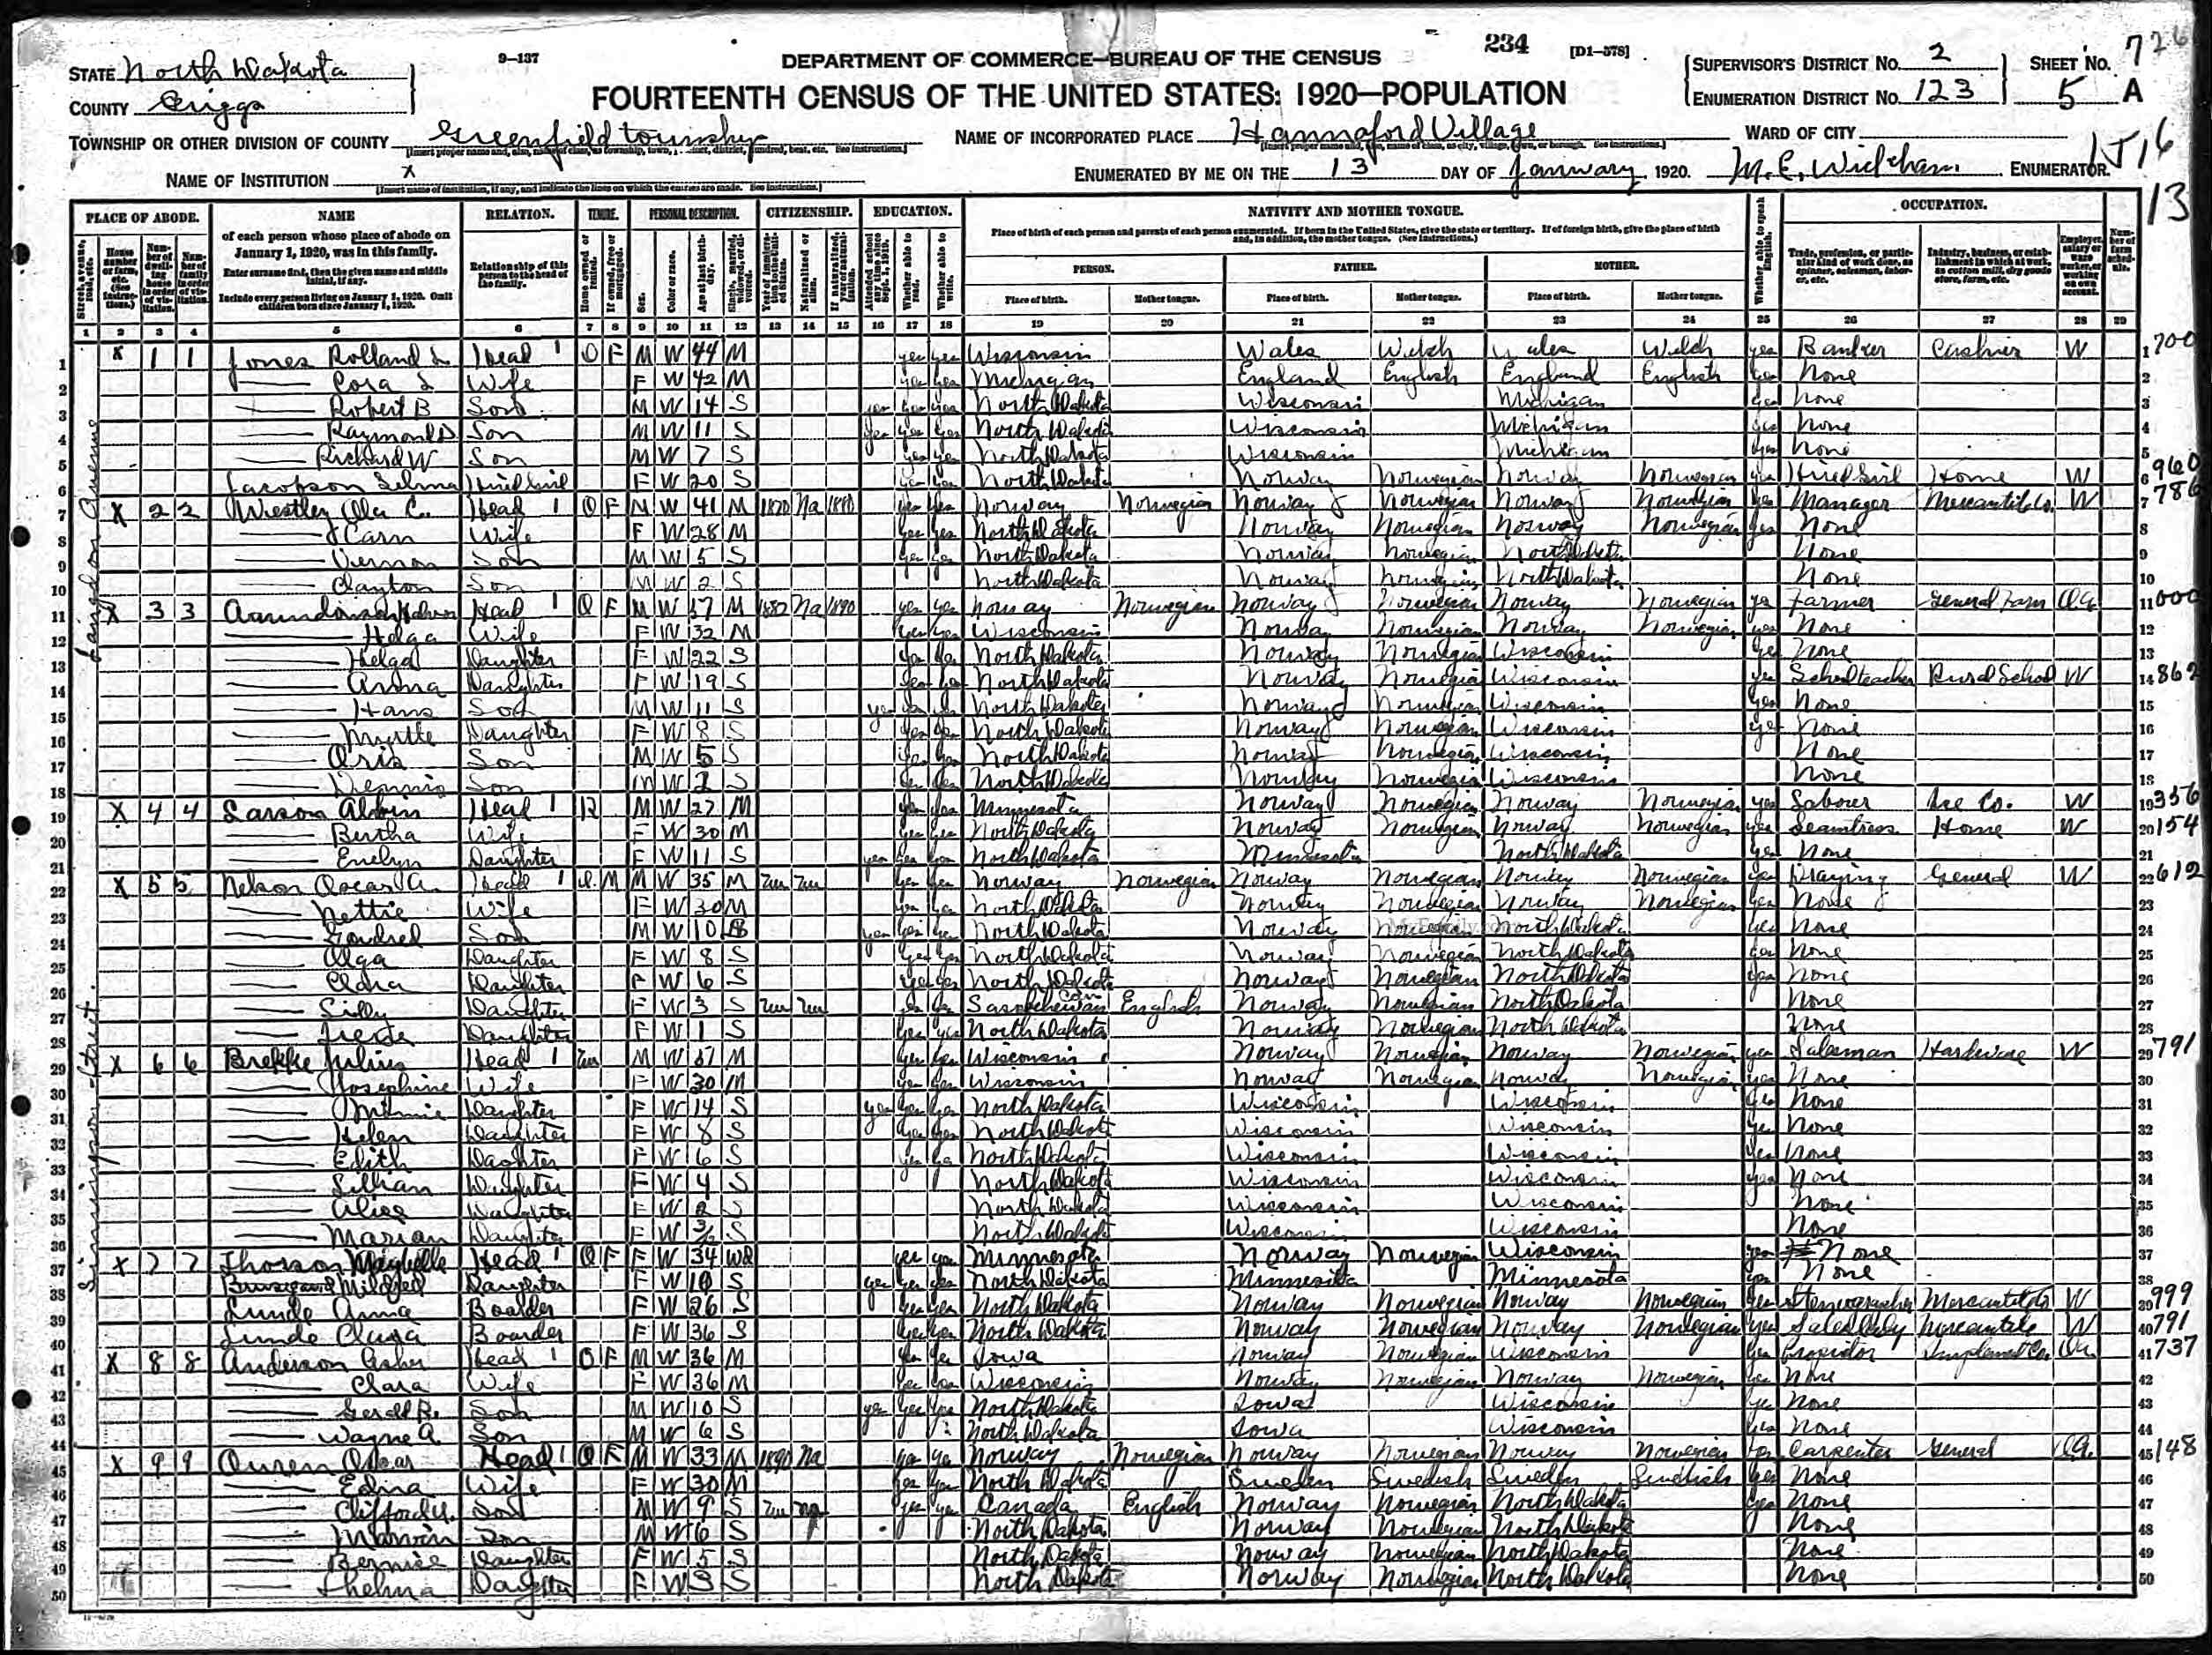 9-137
DEPARTMENT OF COMMERCE—BUREAU OF THE CENSUS
234 [D1-578]
FOURTEENTH CENSUS OF THE UNITED STATES: 1920—POPULATION
STATE North Dakota
COUNTY Griggs
TOWNSHIP OR OTHER DIVISION OF COUNTY Greenfield township
NAME OF INSTITUTION x
NAME OF INCORPORATED PLACE Hannaford Village
WARD OF CITY
ENUMERATED BY ME ON THE 13 DAY OF January, 1920. M.E. Wickham. ENUMERATOR.
SUPERVISOR'S DISTRICT No. 2
ENUMERATION DISTRICT No. 123
SHEET No. 5 A
PLACE OF ABODE. NAME RELATION. TENURE. PERSONAL DESCRIPTION. CITIZENSHIP. EDUCATION. NATIVITY AND MOTHER TONGUE. OCCUPATION.
of each person whose place of abode on January 1, 1920, was in this family.
Enter surname first, then the given name and middle initial, if any.
Include every person living on January 1, 1920. Omit children born since January 1, 1920.
Relationship of this person to the head of the family.
Place of birth of each person and parents of each person enumerated. If born in the United States, give the state or territory. If of foreign birth, give the place of birth and, in addition, the mother tongue. (See Instructions.)
PERSON. FATHER. MOTHER.
Place of birth. Mother tongue. Place of birth. Mother tongue. Place of birth. Mother tongue.
1 2 3 4 5 6 7 8 9 10 11 12 13 14 15 16 17 18 19 20 21 22 23 24 25 26 27 28 29
Langdon Avenue
1 x 1 1 Jones Rolland L Head 1 O F M W 44 M yes yes Wisconsin Wales Welch Wales Welch yes Banker Cashier W 1 700
2 Cora L Wife F W 42 M yes yes Michigan England English England English yes None 2
3 Robert B Son M W 14 S yes yes yes North Dakota Wisconsin Michigan yes None 3
4 Raymond D Son M W 11 S yes yes yes North Dakota Wisconsin Michigan yes None 4
5 Richard W Son M W 7 S yes yes North Dakota Wisconsin Michigan yes None 5
6 Jacobson Selma Hired Girl F W 20 S yes yes North Dakota Norway Norwegian Norway Norwegian yes Hired Girl Home W 6 960
7 x 2 2 Ole C. Head 1 O F M W 41 M Na yes yes Norway Norwegian Norway Norwegian Norway Norwegian yes Manager Mercantile Co. W 7 786
8 Wife F W 28 M yes yes North Dakota Norway Norwegian Norway Norwegian yes None 8
9 Vernon Son M W 5 S yes yes North Dakota Norway Norwegian North Dakota None 9
10 Clayton Son M W 2 S North Dakota Norway Norwegian North Dakota None 10
11 x 3 3 Head 1 O F M W 57 M 1882 Na 1890 yes yes Norway Norwegian Norway Norwegian Norway Norwegian yes Farmer General Farm OA 11 000
12 Helga Wife F W 32 M yes yes Wisconsin Norway Norwegian Norway Norwegian yes None 12
13 Helga Daughter F W 22 S yes yes North Dakota Norway Norwegian Wisconsin yes None 13
14 Anna Daughter F W 19 S yes yes North Dakota Norway Norwegian Wisconsin yes School teacher Rural School W 14 862
15 Hans Son M W 11 S yes yes yes North Dakota Norway Norwegian Wisconsin yes None 15
16 Myrtle Daughter F W 8 S yes yes North Dakota Norway Norwegian Wisconsin yes None 16
17 Oris Son M W 5 S yes yes North Dakota Norway Norwegian Wisconsin None 17
18 Dennis Son M W 2 S yes yes North Dakota Norway Norwegian Wisconsin None 18
19 x 4 4 Larson Alvin Head 1 R M W 27 M yes yes Minnesota Norway Norwegian Norway Norwegian yes Labourer Ice Co. W 19 356
20 Bertha Wife F W 30 M yes yes North Dakota Norway Norwegian Norway Norwegian yes Seamtress Home W 20 154
21 Evelyn Daughter F W 11 S yes yes yes North Dakota Minnesota North Dakota yes None 21
22 x 5 5 Nelson Oscar A. Head 1 O M M W 35 M Un Un yes yes Norway Norwegian Norway Norwegian Norway Norwegian yes Draying General W 22 612
23 Nettie Wife F W 30 M yes yes North Dakota Norway Norwegian Norway Norwegian yes None 23
24 Son M W 10 S yes yes yes North Dakota Norway Norwegian North Dakota yes None 24
25 Olga Daughter F W 8 S yes yes North Dakota Norway Norwegian North Dakota yes None 25
26 Daughter F W 6 S yes yes North Dakota Norway Norwegian North Dakota yes None 26
27 Lilly Daughter F W 3 S Un Un yes yes Saskachewan Can English Norway Norwegian North Dakota None 27
28 Daughter F W 1 S yes yes North Dakota Norway Norwegian North Dakota None 28
Simmingson Street
29 x 6 6 Brekke Julius Head 1 Un M W 37 M yes yes Wisconsin Norway Norwegian Norway Norwegian yes Salesman Hardware W 29 791
30 Josephine Wife F W 30 M yes yes Wisconsin Norway Norwegian Norway Norwegian yes None 30
31 Minnie Daughter F W 14 S yes yes yes North Dakota Wisconsin Wisconsin yes None 31
32 Helen Daughter F W 8 S yes yes North Dakota Wisconsin Wisconsin yes None 32
33 Edith Daughter F W 6 S North Dakota Wisconsin Wisconsin yes None 33
34 Lillian Daughter F W 4 S North Dakota Wisconsin Wisconsin yes None 34
35 Alice Daughter F W 2 S North Dakota Wisconsin Wisconsin None 35
36 Marian Daughter F W S North Dakota Wisconsin Wisconsin None 36
37 x 7 7 Thorson Maybelle Head 1 O F F W 34 Wd yes yes Minnesota Norway Norwegian Wisconsin yes None 37
38 Mildred Daughter F W 10 S yes yes yes North Dakota Minnesota Minnesota yes None 38
39 Lunde Anna Boarder F W 26 S yes yes North Dakota Norway Norwegian Norway Norwegian yes Stenographer Mercantile Co W 39 999
40 Lunde Clara Boarder F W 36 S yes yes North Dakota Norway Norwegian Norway Norwegian yes Sales lady Mercantile W 40 791
41 x 8 8 Anderson Asher Head 1 O F M W 36 M yes yes Iowa Norway Norwegian Wisconsin yes Propietor Implement Co. OA 41 737
42 Clara Wife F W 36 M yes yes Wisconsin Norway Norwegian Norway Norwegian yes None 42
43 Gerald R. Son M W 10 S yes yes yes North Dakota Iowa Wisconsin yes None 43
44 Wayne A. Son M W 6 S North Dakota Iowa Wisconsin yes None 44
45 x 9 9 Auren Oscar Head 1 O F M W 33 M 1890 Na yes yes Norway Norwegian Norway Norwegian Norway Norwegian yes Carpenter General OA 45 148
46 Edna Wife F W 30 M yes yes North Dakota Sweden Swedish Sweden Swedish yes None 46
47 Clifford Son M W 9 S Un yes yes Canada English Norway Norwegian North Dakota yes None 47
48 Marvin Son M W 6 S North Dakota Norway Norwegian North Dakota None 48
49 Bernice Daughter F W 5 S North Dakota Norway Norwegian North Dakota None 49
50 Thelma Daughter F W 3 S North Dakota Norway Norwegian North Dakota None 50